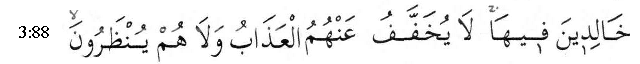 3:88 خَالِدِينَ فِيهَا ۖ لَا يُخَفَّفُ عَنْهُمُ الْعَذَابُ وَلَا هُمْ يُنْظَرُونَ ۙ